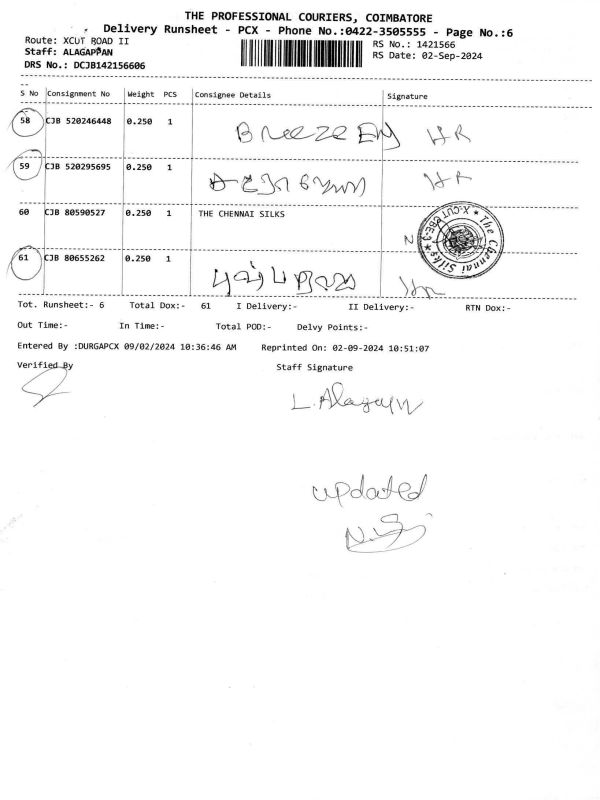 THE PROFESSIONAL COURIERS, COIMBATORE
Delivery Runsheet - PCX - Phone No.:0422-3505555 - Page No.:6
Route: XCUT ROAD II
RS No.: 1421566
Staff: ALAGAPPAN
RS Date: 02-Sep-2024
DRS No.: DCJB142156606
S No Consignment No Weight PCS Consignee Details Signature
58 CJB 520246448 0.250 1 Breeze
59 CJB 520295695 0.250 1
60 CJB 80590527 0.250 1 THE CHENNAI SILKS N
The Chennai Silks * X-CUT CBE-3 *
61 CJB 80655262 0.250 1
Tot. Runsheet:- 6 Total Dox:- 61 I Delivery:- II Delivery:- RTN Dox:-
Out Time:- In Time:- Total POD:- Delvy Points:-
Entered By :DURGAPCX 09/02/2024 10:36:46 AM Reprinted On: 02-09-2024 10:51:07
Verified By Staff Signature
updated